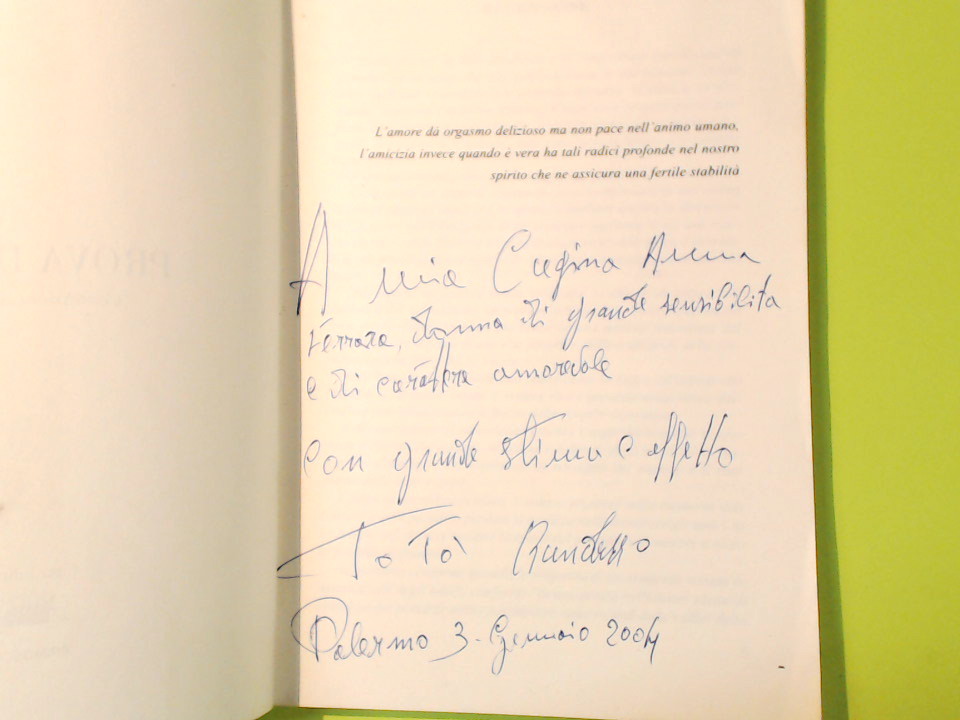 L'amore dà orgasmo delizioso ma non pace nell'animo umano,
l'amicizia invece quando è vera ha tali radici profonde nel nostro
spirito che ne assicura una fertile stabilità
A mia Cugina Anna
Ferrara, donna di grande sensibilita
e di carattere amorevole
con grande stima e affetto
Totò
Palermo 3 - Gennaio 2004
PROVA